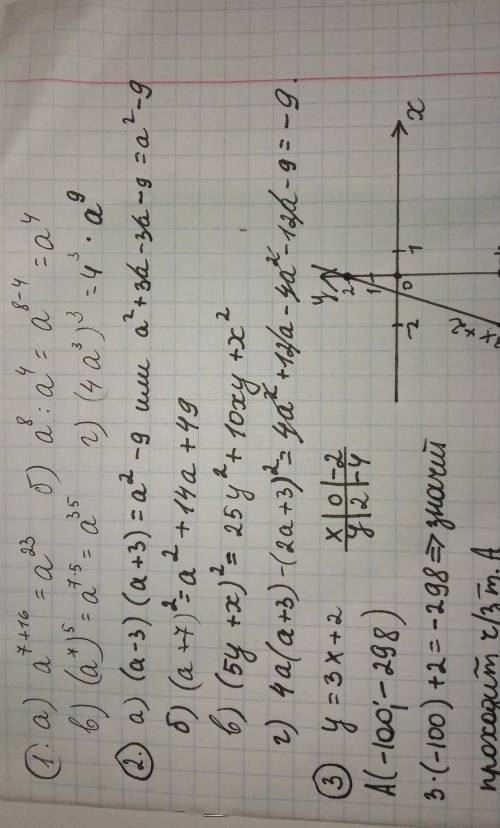 1. а) a^{7+16} = a^{23} б) a^8 : a^4 = a^{8-4} = a^4
в) (a^7)^5 = a^{7·5} = a^{35} г) (4a^3)^3 = 4^3 · a^9
2. а) (a-3)(a+3) = a^2 - 9 или a^2 + 3a - 3a - 9 = a^2 - 9
б) (a+7)^2 = a^2 + 14a + 49
в) (5y + x)^2 = 25y^2 + 10xy + x^2
г) 4a(a+3) - (2a+3)^2 = 4a^2 + 12a - 4a^2 - 12a - 9 = -9.
3 y = 3x + 2
x | 0 | -2
y | 2 | -4
A(-100; -298)
3·(-100) + 2 = -298 => значит
проходит ч/з т. A
y
2
1
-2 0 1 x